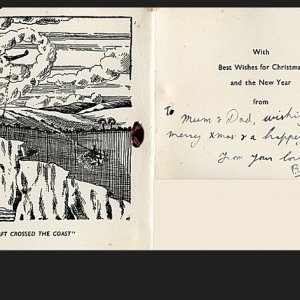 FT CROSSED THE COAST"
With
Best Wishes for Christma
and the New Year
from
To Mum & Dad, wishi
merry Xmas & a happi
From your lov
B